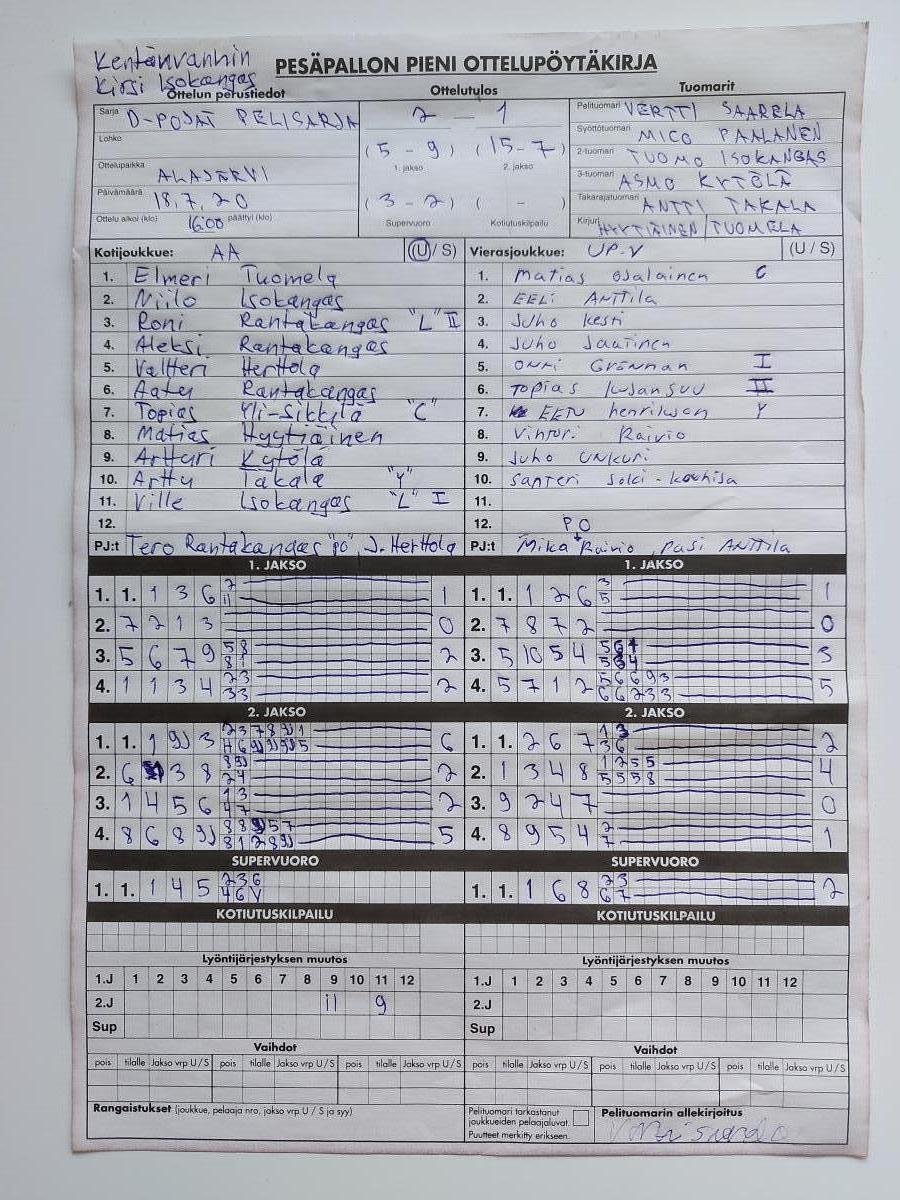 Kentänvanhin
Kirsi Isokangas
PESÄPALLON PIENI OTTELUPÖYTÄKIRJA
Ottelun perustiedot Ottelutulos Tuomarit
Sarja D-POJAT PELISARJA
Lohko
Ottelupaikka ALAJÄRVI
Päivämäärä 18.7.20
Ottelu alkoi (klo) 16:00 päättyi (klo)
2 — 1
(5 - 9) (15 - 7)
1. jakso 2. jakso
(3 - 2) ( - )
Supervuoro Kotiutuskilpailu
Pelituomari VERTTI SAARELA
Syöttötuomari MICO PAALANEN
2-tuomari TUOMO ISOKANGAS
3-tuomari ASMO KYTÖLÄ
Takarajatuomari ANTTI TAKALA
Kirjuri HYYTIÄINEN / TUOMELA
Kotijoukkue: AA (U / S)
1. Elmeri Tuomela
2. Niilo Isokangas
3. Roni Rantakangas "L" II
4. Aleksi Rantakangas
5. Valtteri Herttola
6. Aatu Rantakangas
7. Topias Yli-Sikkilä "C"
8. Matias Hyytiäinen
9. Artturi Kytölä
10. Arttu Takala "Y"
11. Ville Isokangas "L" I
12.
PJ:t Tero Rantakangas "PO", J. Herttola
Vierasjoukkue: UP-V (U / S)
1. Matias Ojalainen C
2. EELI ANTTILA
3. Juho Kesti
4. Juho Saarinen
5. ONNI GRENMAN I
6. Topias II
7. EETU Henrikson Y
8. Vihtori Raivio
9. Juho UNKURI
10. Santeri
11.
12.
PO
PJ:t Mika Raivio, Pasi ANTTILA
1. JAKSO 1. JAKSO
1. 1. 1 3 6 7 11 1
2. 7 2 1 3 0
3. 5 6 7 9 58 81 2
4. 1 1 3 4 23 33 2
1. 1. 1 2 6 3 5 1
2. 7 8 7 2 0
3. 5 10 5 4 3
4. 5 7 1 2 56693 66233 5
2. JAKSO 2. JAKSO
1. 1. 1 9) 3 6
2. 6 3 8 2
3. 1 4 5 6 13 47 2
4. 8 6 8 9) 5
1. 1. 2 6 7 13 36 2
2. 1 3 4 8 1255 5558 4
3. 9 2 4 7 0
4. 8 9 5 4 2 7 1
SUPERVUORO SUPERVUORO
1. 1. 1 4 5 236 46V
1. 1. 1 6 8 23 67 2
KOTIUTUSKILPAILU KOTIUTUSKILPAILU
Lyöntijärjestyksen muutos Lyöntijärjestyksen muutos
1.J 1 2 3 4 5 6 7 8 9 10 11 12 1.J 1 2 3 4 5 6 7 8 9 10 11 12
2.J 11 9 2.J
Sup Sup
Vaihdot Vaihdot
pois tilalle Jakso vrp U/S pois tilalle Jakso vrp U/S pois tilalle Jakso vrp U/S pois tilalle Jakso vrp U/S pois tilalle Jakso vrp U/S pois tilalle Jakso vrp U/S
Rangaistukset (joukkue, pelaaja nro, jakso vrp U / S ja syy)
Pelituomari tarkastanut
joukkueiden pelaajaluvat.
Puutteet merkitty erikseen.
Pelituomarin allekirjoitus